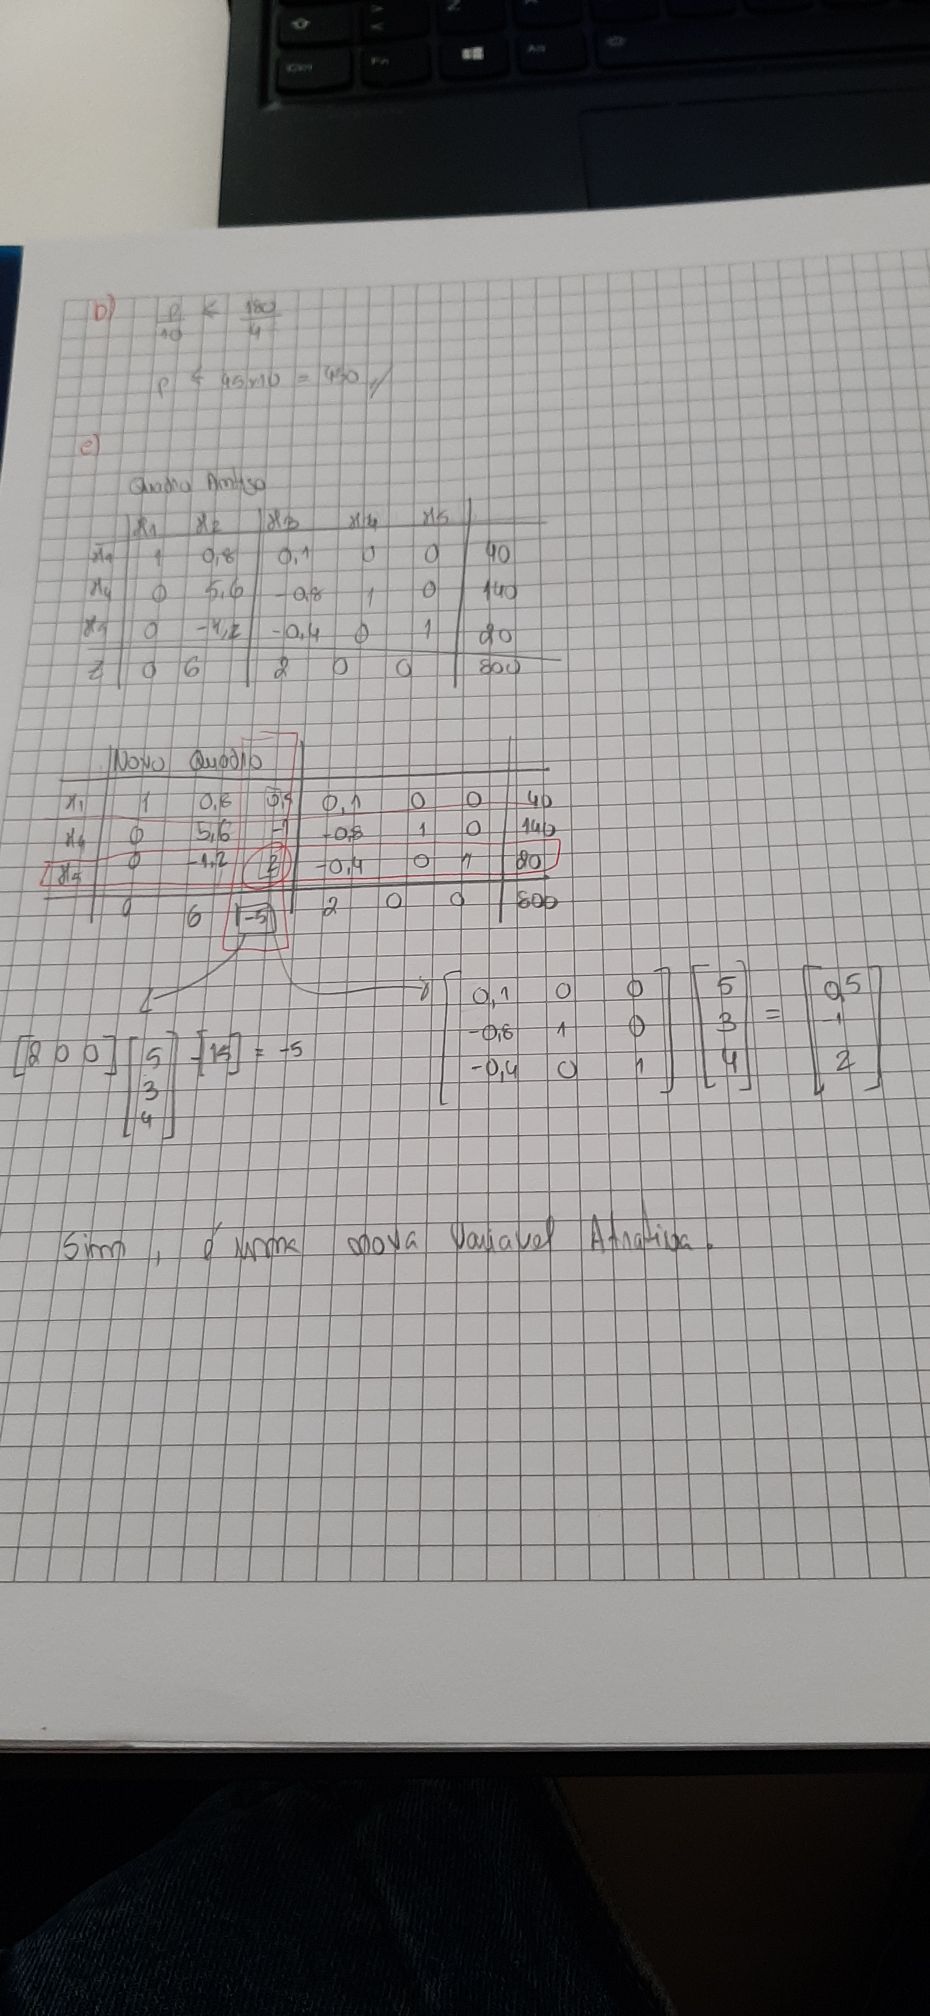 b) P/10 < 180/4
P < 45x10 = 450 //
c)
Quadro Antigo
x1 x2 x3 x4 x5
x1 1 0,8 0,1 0 0 40
x4 0 5,6 -0,8 1 0 140
x5 0 -1,2 -0,4 0 1 20
z 0 6 2 0 0 800
Novo Quadro
x1 1 0,8 0,5 0,1 0 0 40
x4 0 5,6 -1 -0,8 1 0 140
x5 0 -1,2 2 -0,4 0 1 20
0 6 -5 2 0 0 800
[0,1 0 0] [5] [0,5]
[-0,8 1 0] [3] = [-1]
[-0,4 0 1] [4] [2]
[2 0 0] [5] - [15] = -5
[3]
[4]
Sim, é uma nova Variavel Atrativa.